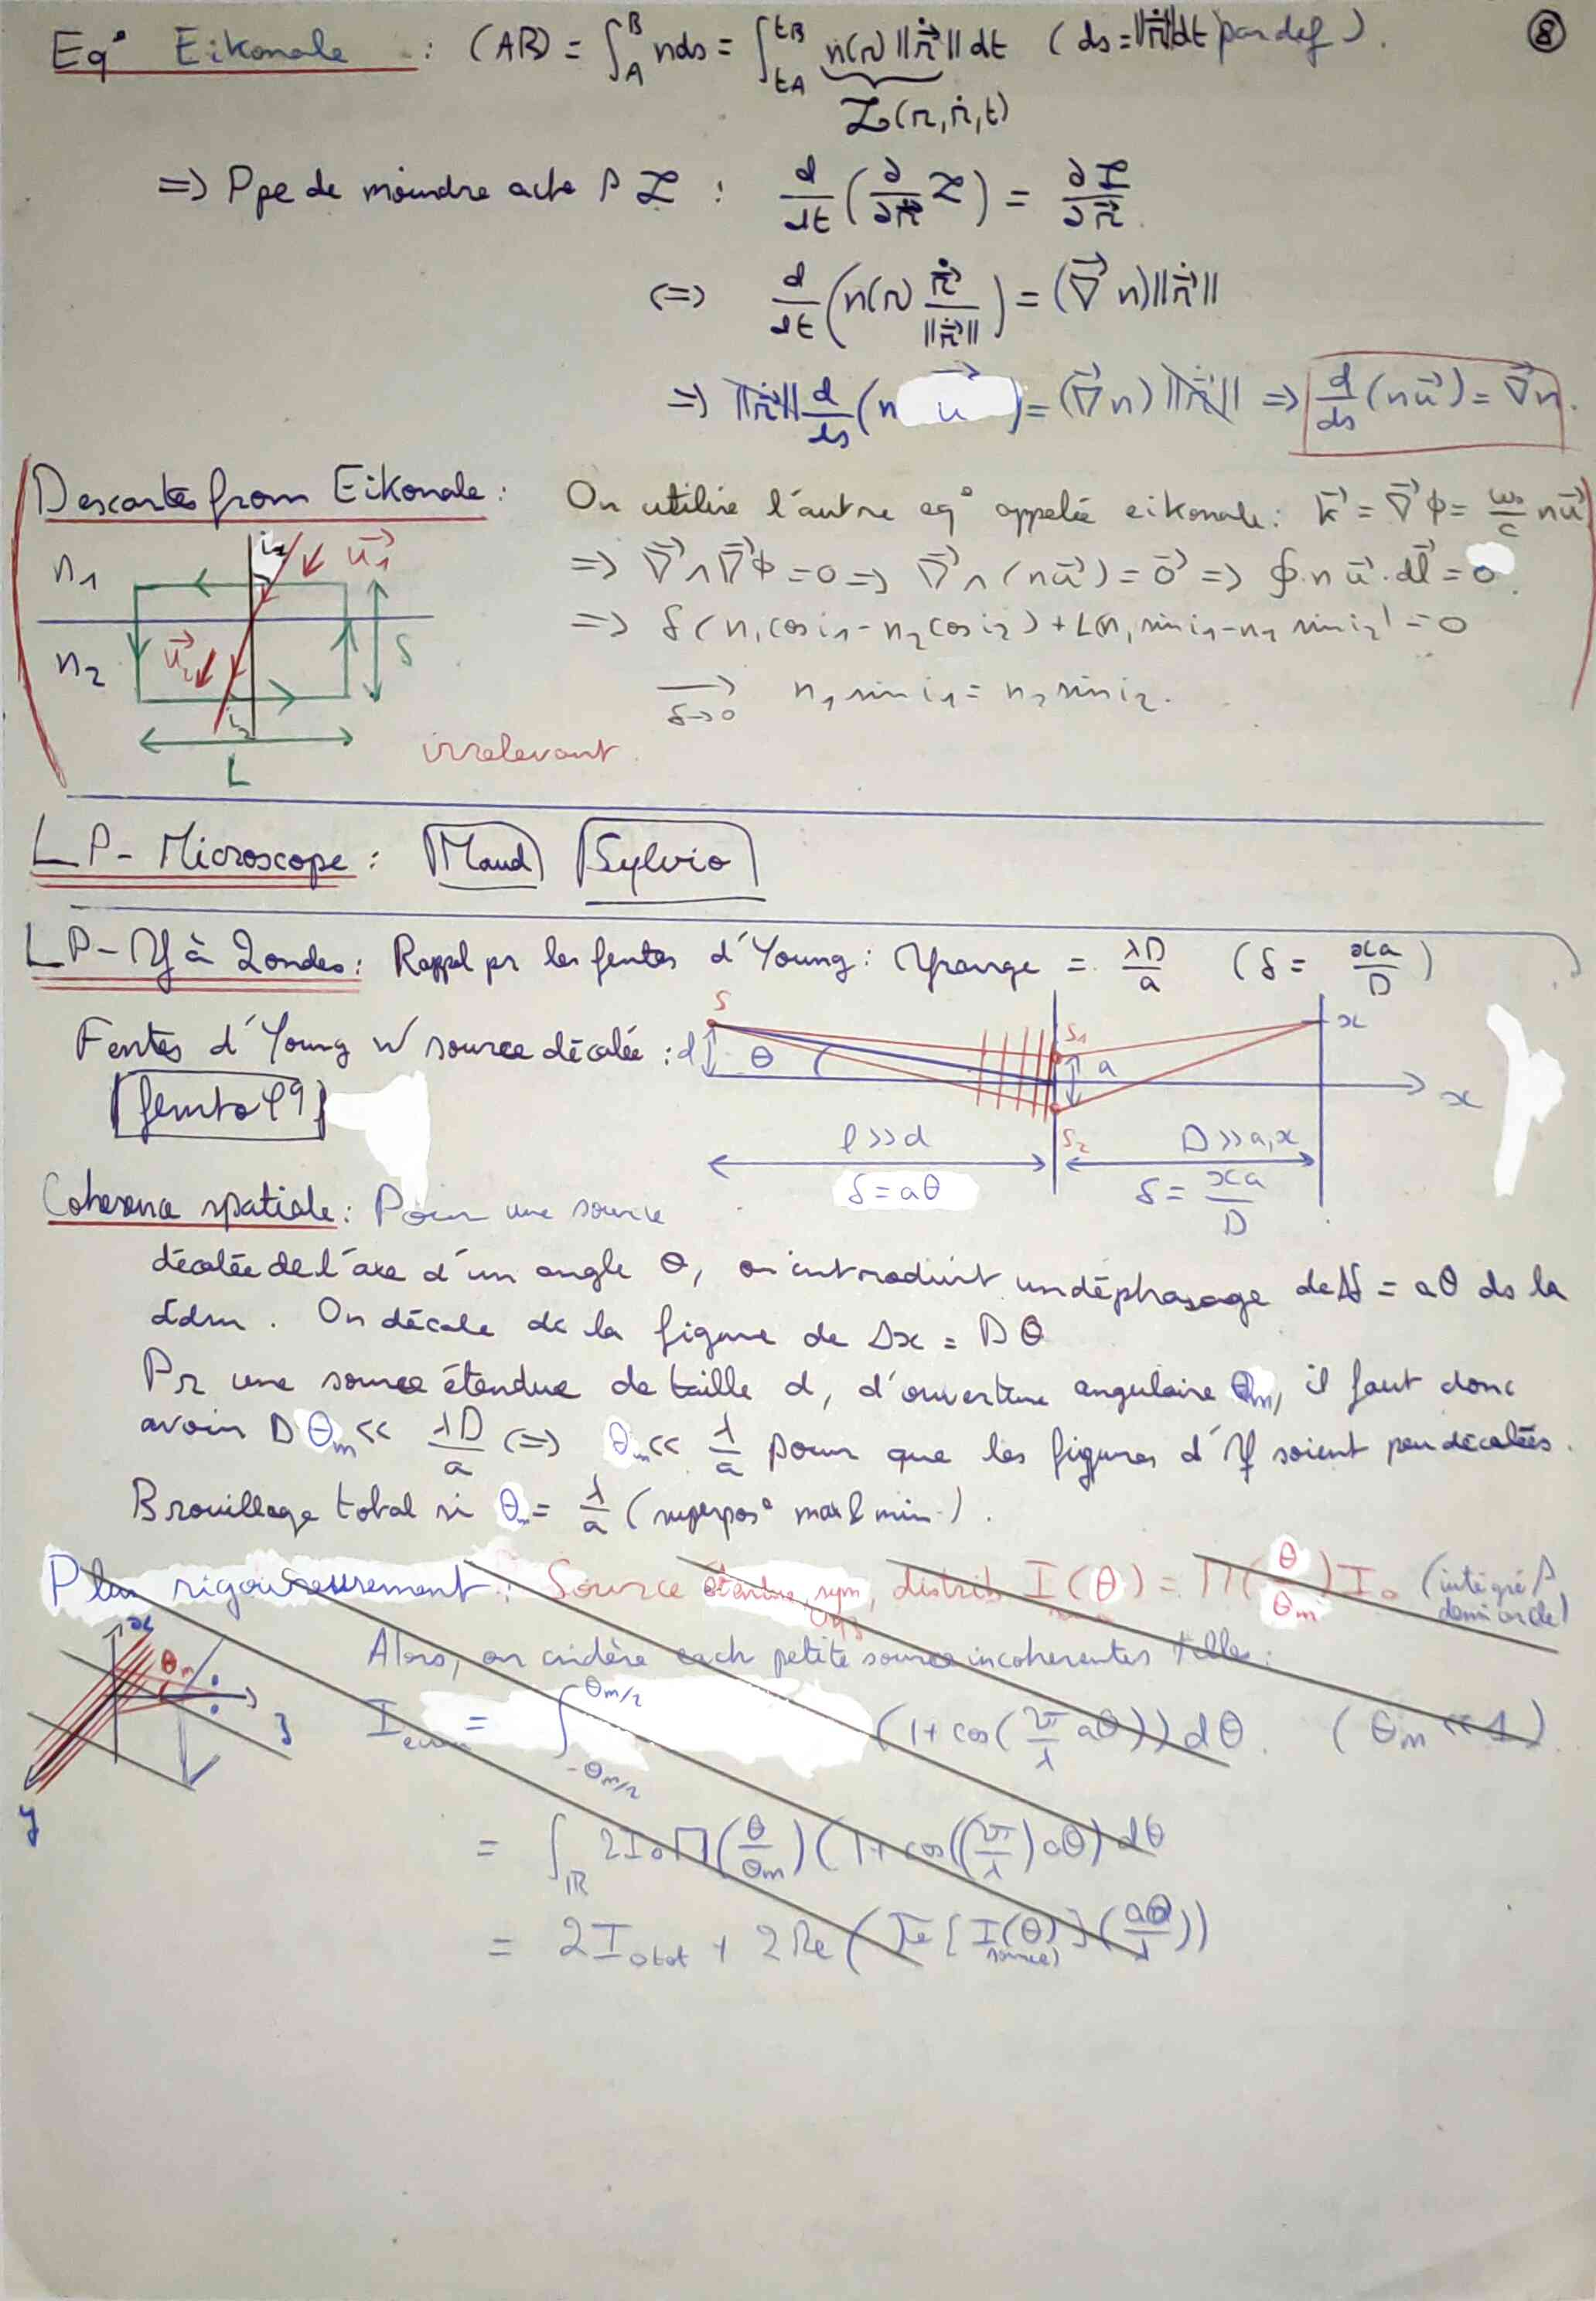 Eq° Eikonale : (AB) = ∫_A^B n ds = ∫_{tA}^{tB} n(r) ||ṙ⃗|| dt ( ds = ||ṙ⃗|| dt par def ). ⑧
ℒ(r, ṙ, t)
=> Ppe de moindre acto ℒ : d/dt (∂/∂ṙ⃗ ℒ) = ∂ℒ/∂r⃗
<=> d/dt ( n(r) ṙ⃗/||ṙ⃗|| ) = (∇⃗ n) ||ṙ⃗||
=> ||ṙ⃗|| d/ds (n u⃗) = (∇⃗ n) ||ṙ⃗|| => d/ds (n u⃗) = ∇⃗ n.
Descartes from Eikonale : On utilise l'autre eq° appelée eikonale : k⃗ = ∇⃗ϕ = ω₀/c n u⃗
=> ∇⃗ ∧ ∇⃗ϕ = 0 => ∇⃗ ∧ (n u⃗) = 0⃗ => ∮ n u⃗ . dl⃗ = 0.
=> δ ( n₁ cos i₁ - n₂ cos i₂ ) + L(n₁ sin i₁ - n₂ sin i₂) = 0
δ→0 n₁ sin i₁ = n₂ sin i₂.
n₁ i₁ u⃗₁
n₂ u⃗₂ δ
i₂
L
irrelevant.
LP- Microscope : Maud Sylvio
LP- Yf à 2 ondes : Rappel pr les fentes d'Young : Yfrange = λD/a (δ = xa/D)
Fentes d'Young w/ source décalée :
femto 99
S d θ S₁ a S₂ x x
l >> d D >> a, x
δ = aθ δ = xa/D
Coherence spatiale : Pour une source
décalée de l'axe d'un angle θ, on introduit un déphasage de Δδ = aθ ds la
ddm. On décale dc la figure de Δx = Dθ
Pr une source étendue de taille d, d'ouverture angulaire θm, il faut donc
avoir Dθm << λD/a <=> θm << λ/a pour que les figures d'Yf soient peu décalées.
Brouillage total si θm = λ/a (superpos° max & min.).
Plus rigoureusement : Source étendue, sym, distrib I(θ) = Π(θ/θm) I₀ (intégré
demi cercle)
Alors, on cidère each petite source incoherentes
x θm z y
I = ∫_{-θm/2}^{θm/2} (1 + cos(2π/λ aθ)) dθ. (θm << 1)
= ∫_ℝ 2I₀ Π(θ/θm) (1 + cos((2π/λ) aθ) dθ
= 2I₀tot + 2 Re ( [I(θ) source] (aθ/λ))